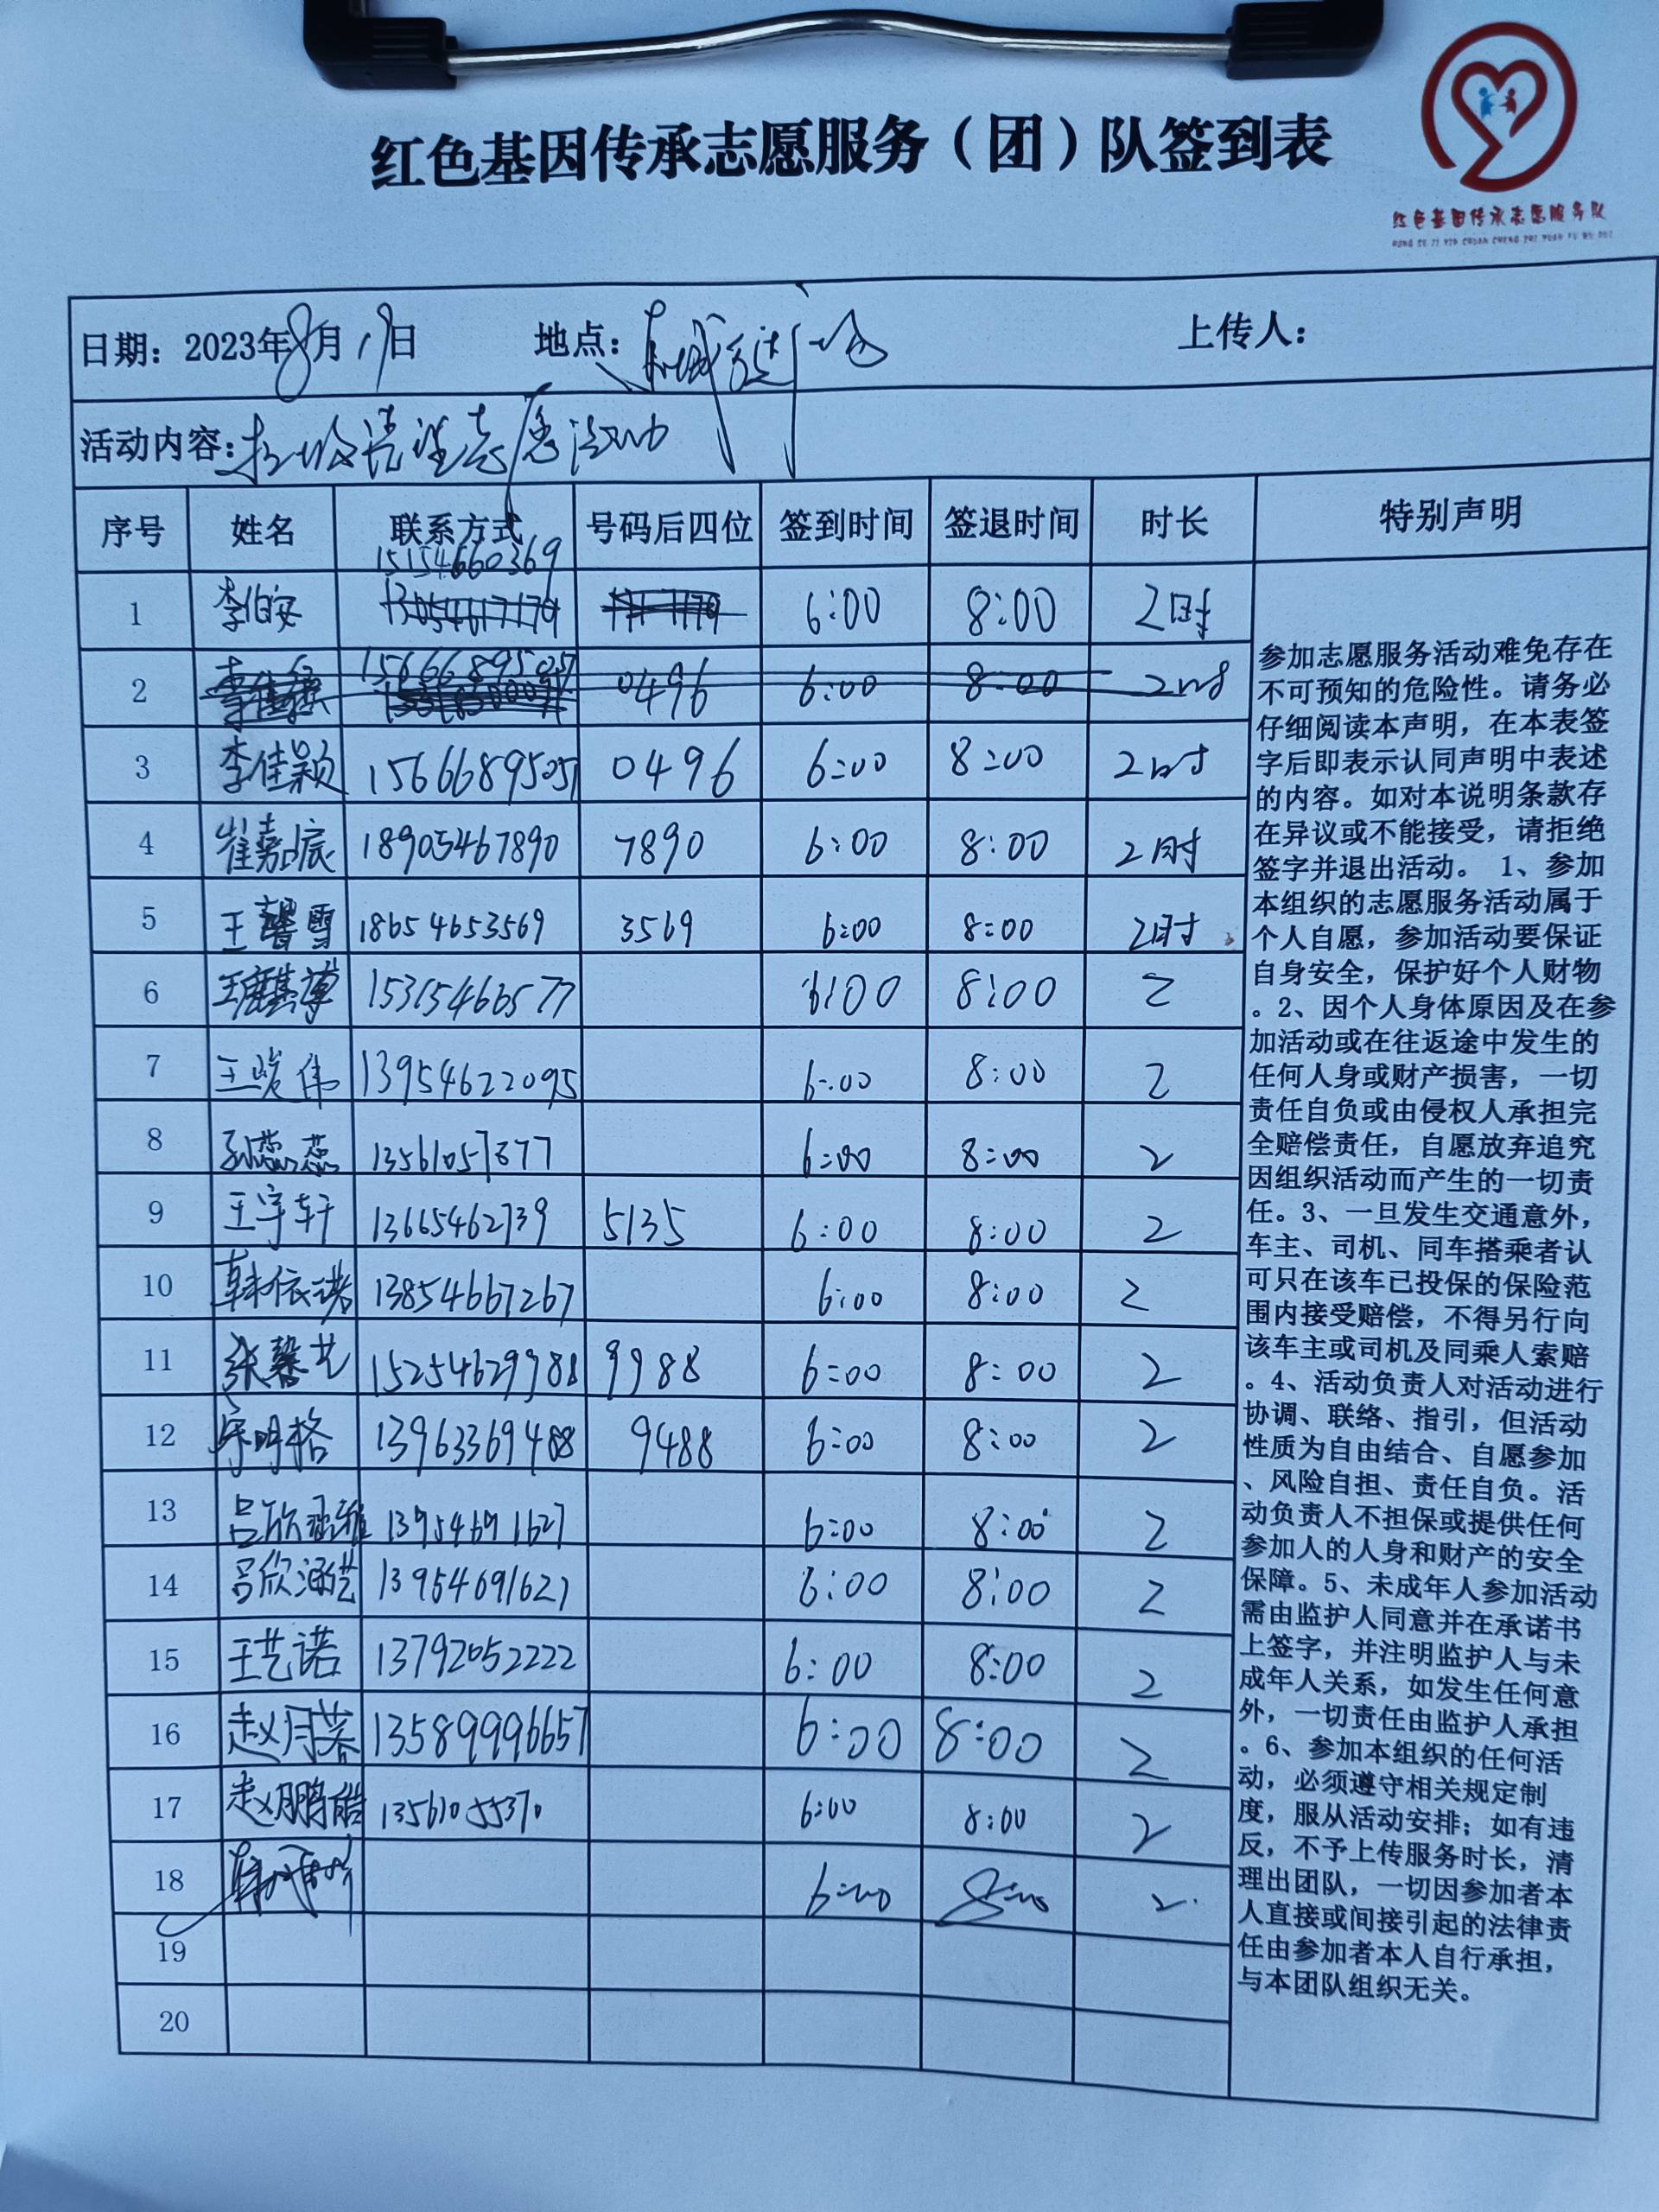 红色基因传承志愿服务（团）队签到表
红色基因传承志愿服务队
HONG SE JI YIN CHUAN CHENG ZHI YUAN FU WU DUI
日期：2023年8月19日 地点： 上传人：
活动内容：垃圾清理志愿活动
序号 姓名 联系方式 号码后四位 签到时间 签退时间 时长 特别声明
15154660369
1 李伯安 6:00 8:00 2时
2 15666895057 0496 6:00 8:00 2时
3 李佳颖 15666895057 0496 6:00 8:00 2时
4 崔嘉宸 18905467890 7890 6:00 8:00 2时
5 王馨雪 18654653569 3569 6:00 8:00 2时
6 15315466577 6:00 8:00 2
7 王峻伟 13954622095 6:00 8:00 2
8 孙蕊蕊 6:00 8:00 2
9 王宇轩 13665462739 5135 6:00 8:00 2
10 韩依诺 13854667267 6:00 8:00 2
11 张馨艺 15254629988 9988 6:00 8:00 2
12 宋明格 13963369488 9488 6:00 8:00 2
13 13954691627 6:00 8:00 2
14 吕欣涵艺 13954691627 6:00 8:00 2
15 王艺诺 13792052222 6:00 8:00 2
16 赵月蓉 13589996657 6:00 8:00 2
17 赵鹏皓 13561055370 6:00 8:00 2
18 6:00 8:00 2
19
20
参加志愿服务活动难免存在
不可预知的危险性。请务必
仔细阅读本声明，在本表签
字后即表示认同声明中表述
的内容。如对本说明条款存
在异议或不能接受，请拒绝
签字并退出活动。 1、参加
本组织的志愿服务活动属于
个人自愿，参加活动要保证
自身安全，保护好个人财物
。2、因个人身体原因及在参
加活动或在往返途中发生的
任何人身或财产损害，一切
责任自负或由侵权人承担完
全赔偿责任，自愿放弃追究
因组织活动而产生的一切责
任。3、一旦发生交通意外，
车主、司机、同车搭乘者认
可只在该车已投保的保险范
围内接受赔偿，不得另行向
该车主或司机及同乘人索赔
。4、活动负责人对活动进行
协调、联络、指引，但活动
性质为自由结合、自愿参加
、风险自担、责任自负。活
动负责人不担保或提供任何
参加人的人身和财产的安全
保障。5、未成年人参加活动
需由监护人同意并在承诺书
上签字，并注明监护人与未
成年人关系，如发生任何意
外，一切责任由监护人承担
。6、参加本组织的任何活
动，必须遵守相关规定制
度，服从活动安排；如有违
反，不予上传服务时长，清
理出团队，一切因参加者本
人直接或间接引起的法律责
任由参加者本人自行承担，
与本团队组织无关。